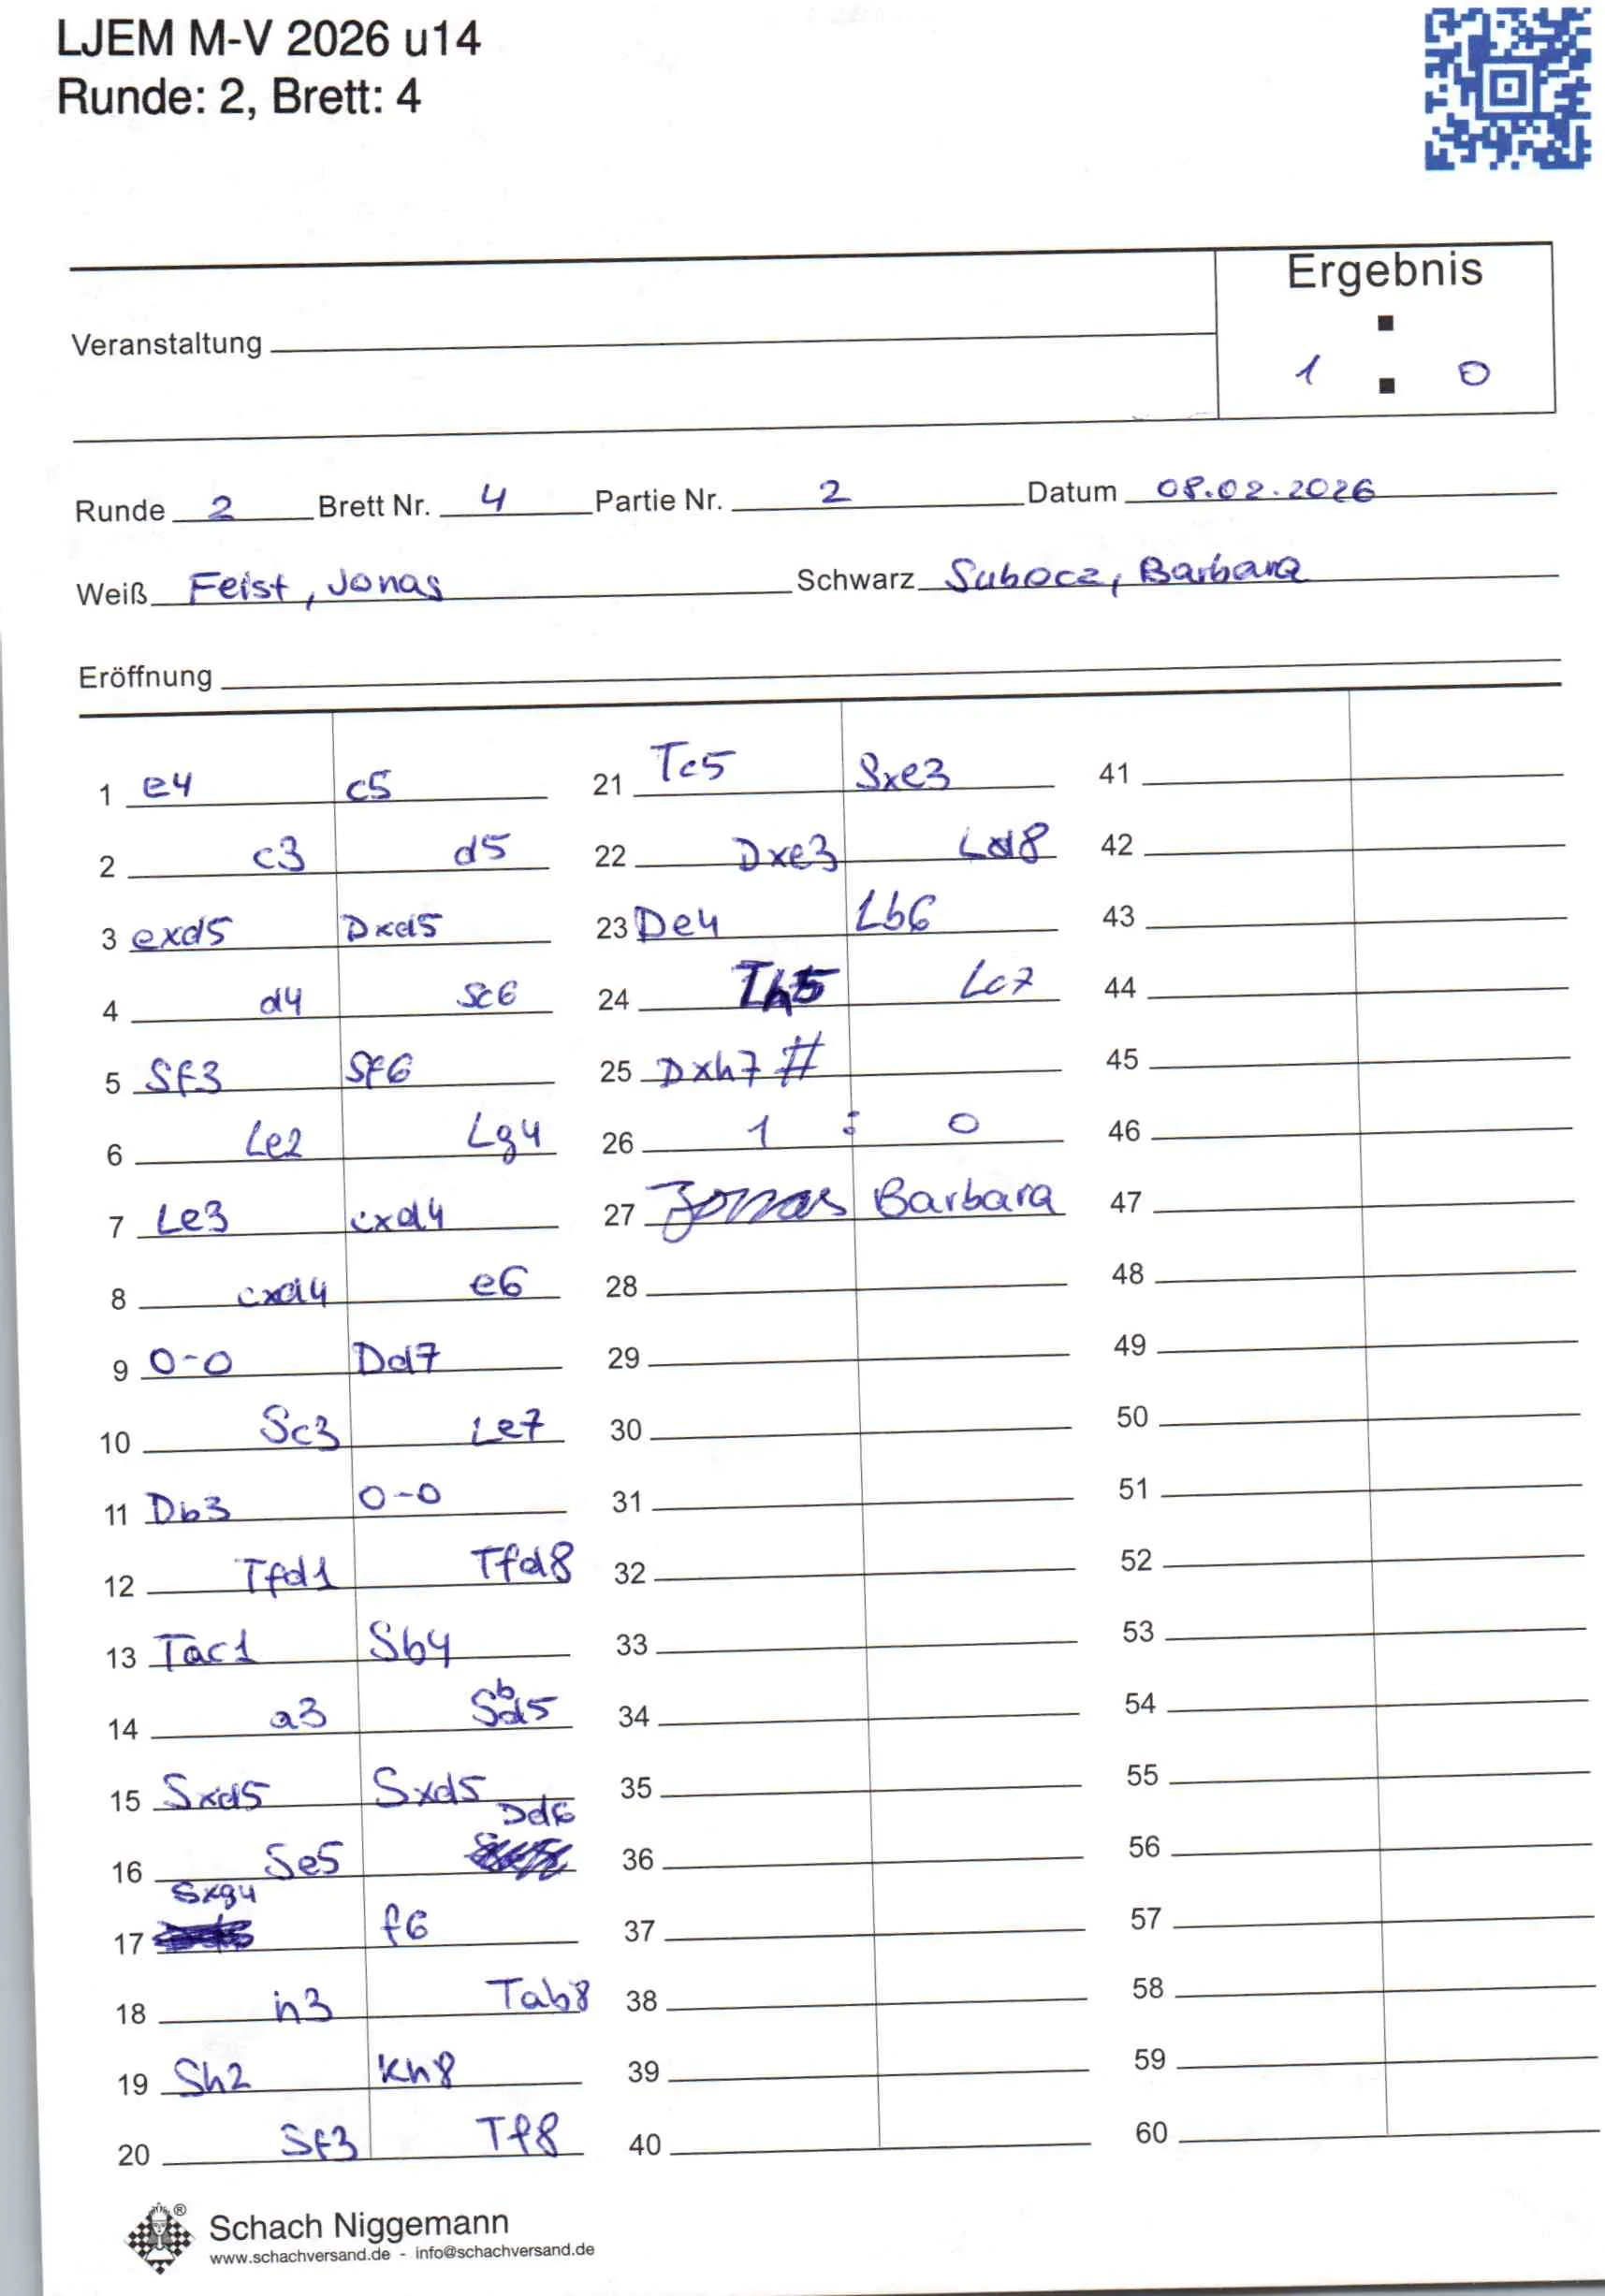 LJEM M-V 2026 u14
Runde: 2, Brett: 4
Ergebnis
Veranstaltung
1 : 0
Runde 2 Brett Nr. 4 Partie Nr. 2 Datum 08.02.2026
Weiß Feist, Jonas Schwarz Subocz, Barbara
Eröffnung
1 e4 c5
2 c3 d5
3 exd5 Dxd5
4 d4 Sc6
5 Sf3 Sf6
6 Le2 Lg4
7 Le3 cxd4
8 cxd4 e6
9 0-0 Dd7
10 Sc3 Le7
11 Db3 0-0
12 Tfd1 Tfd8
13 Tac1 Sb4
14 a3 Sbd5
15 Sxd5 Sxd5
16 Se5 Dd6
17 Sxg4 f6
18 h3 Tab8
19 Sh2 Kh8
20 Sf3 Tf8
21 Tc5 Sxe3
22 Dxe3 Ld8
23 De4 Lb6
24 Th5 Lc7
25 Dxh7#
26 1 : 0
27 Jonas Barbara
28
29
30
31
32
33
34
35
36
37
38
39
40
41
42
43
44
45
46
47
48
49
50
51
52
53
54
55
56
57
58
59
60
®
Schach Niggemann
www.schachversand.de - info@schachversand.de